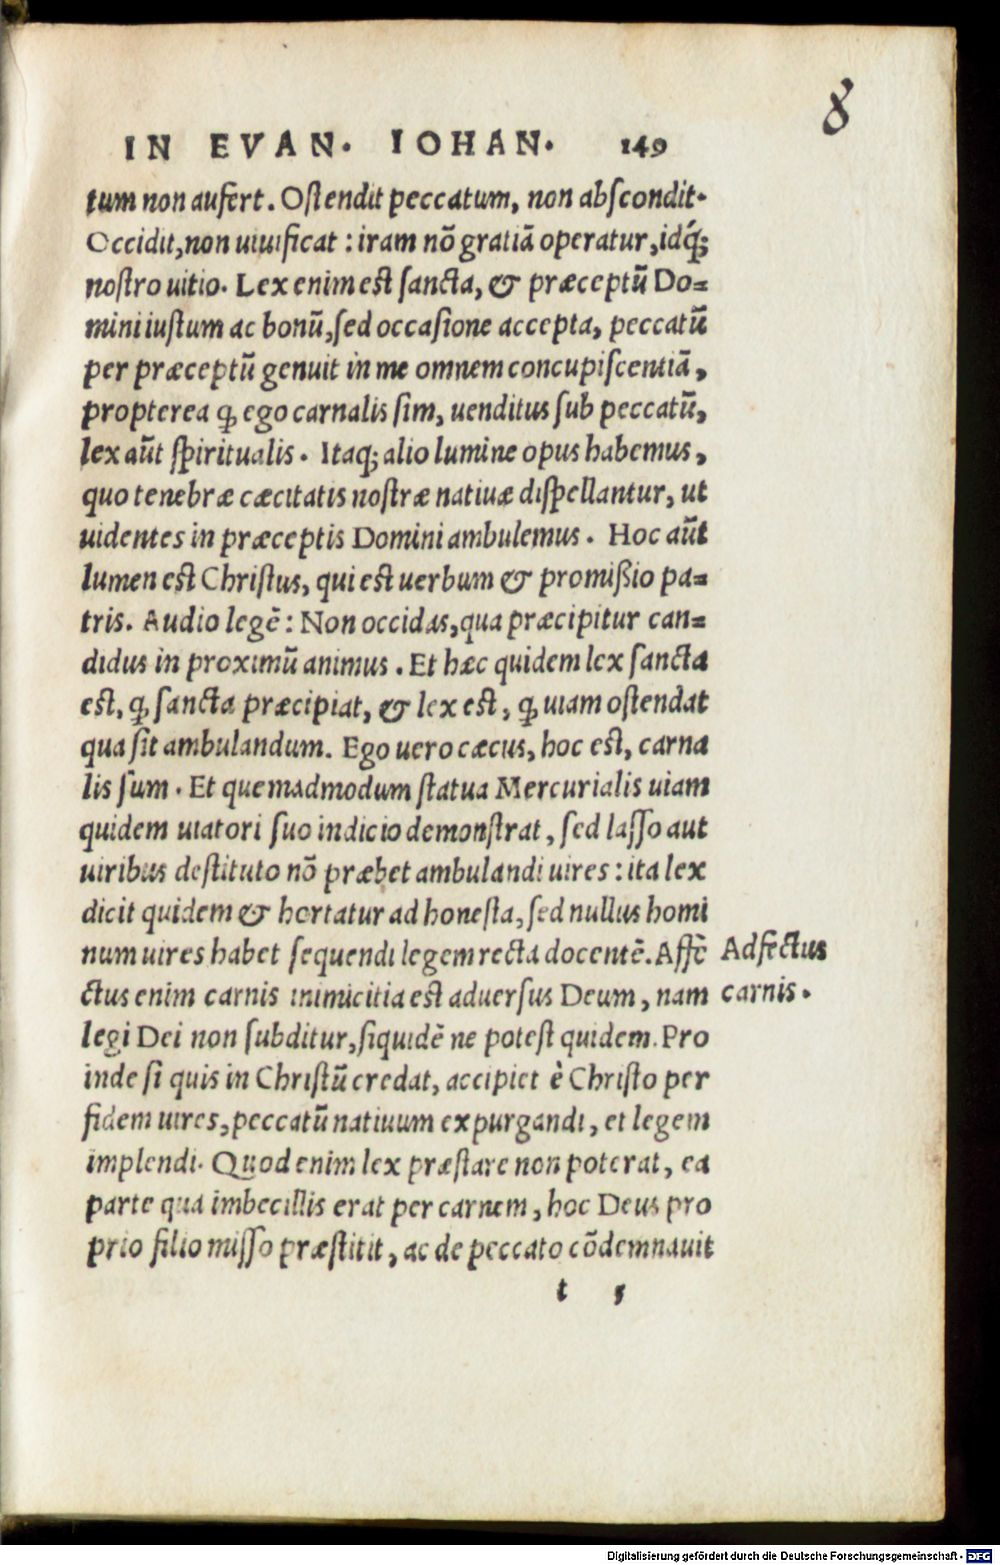 8
IN EVAN. IOHAN. 149
tum non aufert. Oſtendit peccatum, non abſcondit.
Occidit, non uiuificat : iram nō gratiā operatur, idq́;
noſtro uitio. Lex enim eſt ſancta, & præceptū Do=
mini iuſtum ac bonū, ſed occaſione accepta, peccatū
per præceptū genuit in me omnem concupiſcentiā,
propterea ꝙ ego carnalis ſim, uenditus ſub peccatū,
lex aūt ſpiritualis. Itaq; alio lumine opus habemus,
quo tenebræ cæcitatis noſtræ natiuæ diſpellantur, ut
uidentes in præceptis Domini ambulemus. Hoc aūt
lumen eſt Chriſtus, qui eſt uerbum & promißio pa=
tris. Audio legē : Non occidas, qua præcipitur can=
didus in proximū animus. Et hæc quidem lex ſancta
eſt, ꝙ ſancta præcipiat, & lex eſt, ꝙ uiam oſtendat
qua ſit ambulandum. Ego uero cæcus, hoc eſt, carna
lis ſum. Et quemadmodum ſtatua Mercurialis uiam
quidem uiatori ſuo indicio demonſtrat, ſed laſſo aut
uiribus deſtituto nō præbet ambulandi uires : ita lex
dicit quidem & hortatur ad honeſta, ſed nullus homi
num uires habet ſequendi legem recta docentē. Affē
ctus enim carnis inimicitia eſt aduerſus Deum, nam
legi Dei non ſubditur, ſiquidē ne poteſt quidem. Pro
inde ſi quis in Chriſtū credat, accipiet è Chriſto per
fidem uires, peccatū natiuum expurgandi, et legem
implendi. Quod enim lex præſtare non poterat, ea
parte qua imbecillis erat per carnem, hoc Deus pro
prio filio miſſo præſtitit, ac de peccato cōdemnauit
t 5
Adfectus
carnis.
Digitalisierung gefördert durch die Deutsche Forschungsgemeinschaft - DFG